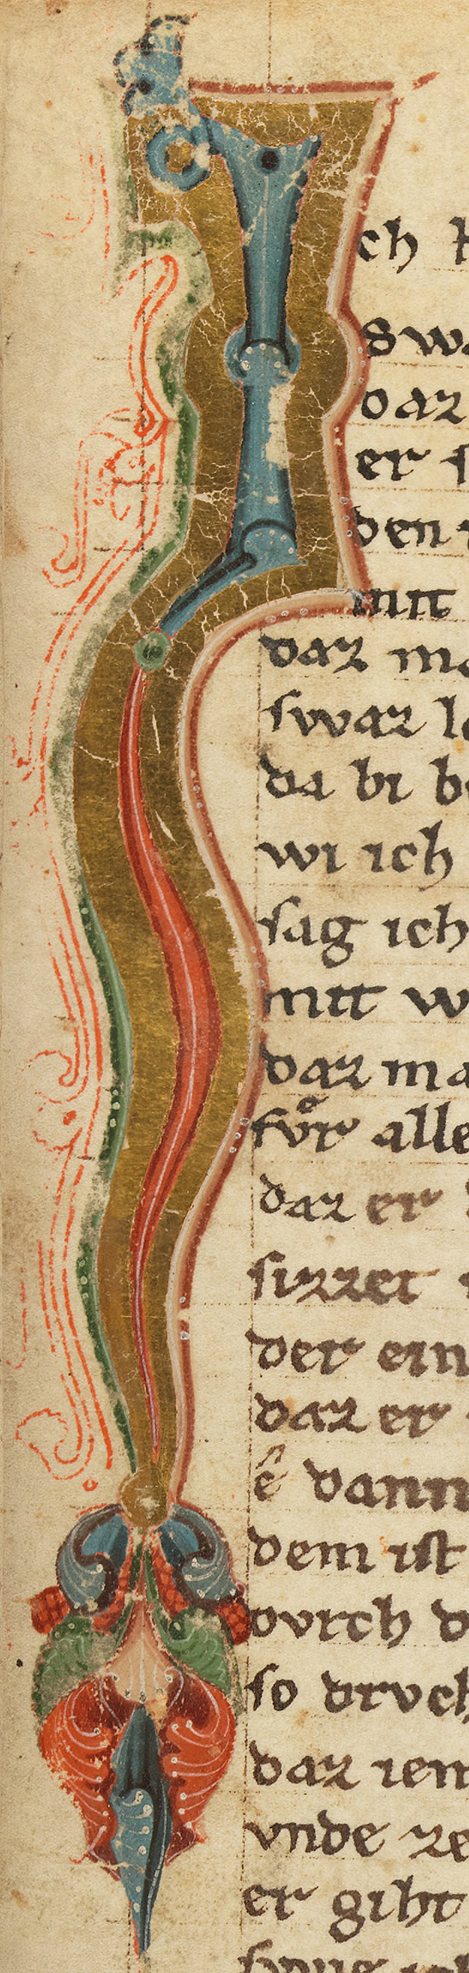 Ich
swa
daz
er
den
mit
daz ma
swaz
da bi
wi ich
sag ich
mit w
daz ma
fvͦr alle
daz er
sizzet
der ein
daz er
ê dann
dem ist
dvrch d
so drvch
daz iem
vnde ze
er giht